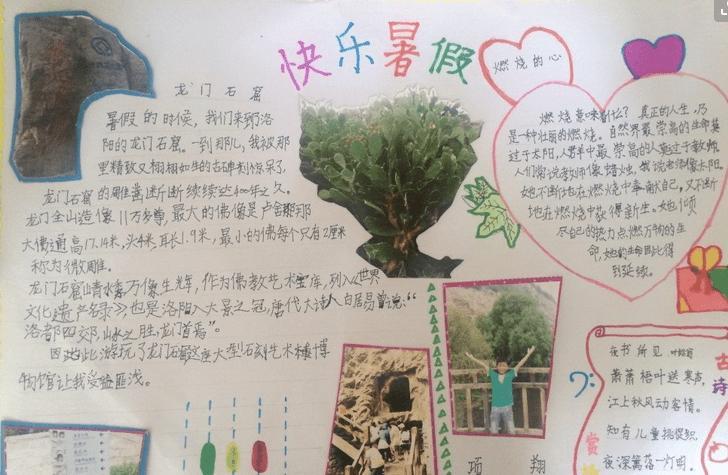 快乐暑假
龙门石窟
暑假的时候，我们来到洛
阳的龙门石窟。一到那儿，我被那
里精致又栩栩如生的古碑刻惊呆了，
龙门石窟的雕凿断断续续达400年之久。
龙门全山造像11万多尊，最大的佛像是卢舍那
大佛通高17.14米，头4米，耳长1.9米，最小的佛每个只有2厘米
称为微雕。
龙门石窟山清水秀万像生辉，作为佛教艺术宝库，列入《世界
文化遗产名录》也是洛阳八大景之冠，唐代大诗人白居易曾说：“
洛都四郊，山水之胜，龙门首焉”。
因此，此游玩了龙门石窟这座大型石刻艺术博
物馆让我受益匪浅。
燃烧的心
燃烧意味着什么？真正的人生，乃
是一种壮丽的燃烧。自然界最崇高的生命莫
过于太阳，人群中最崇高的人莫过于教师
人们常说教师像蜡烛，我说老师像太阳
她不断地在燃烧中奉献自己，又不断
地在燃烧中获得新生。她倾
尽自己的热力点燃万物的生
命，她的生命因此得
到延续。
夜书所见 叶绍翁
萧萧梧叶送寒声
江上秋风动客情。
知有儿童挑促织
夜深篱落一灯明。
古诗
赏
项翔